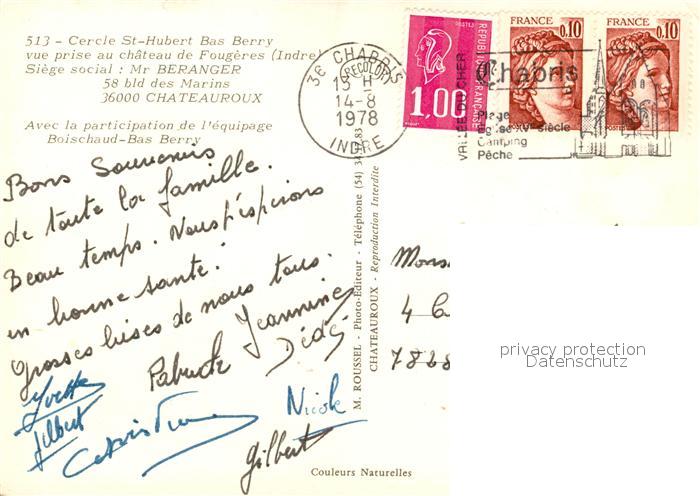 513 - Cercle St-Hubert Bas Berry
vue prise au château de Fougères (Indre)
Siège social : Mr BERANGER
58 bld des Marins
36000 CHATEAUROUX
Avec la participation de l'équipage
Boischaud-Bas Berry
36 CHABRIS
13 H
14-8
1978
INDRE
1,00
REPUBLIQUE FRANÇAISE
FRANCE
0,10
FRANCE
0,10
POSTES
Chabris
Plage
Eglise XVe siècle
Camping
Pêche
Bons Souvenirs
de toute la famille.
Beau temps. Nous espérons
en bonne santé.
Grosses bises de nous tous.
Jeannine
Dédé
Yvette
Gilbert
Christian
Nicole
Gilbert
M. ROUSSEL - Photo-Editeur - Téléphone (54)
CHATEAUROUX - Reproduction Interdite
Couleurs Naturelles
Mons
4
privacy protection
Datenschutz